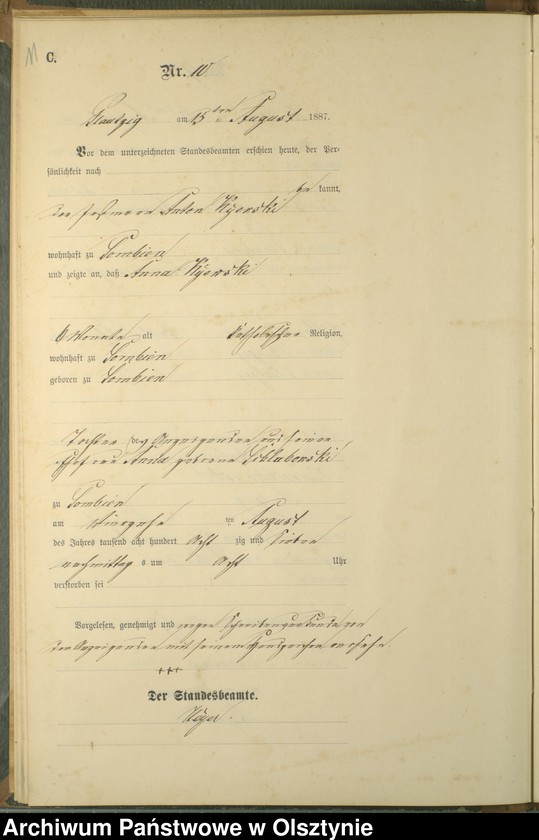 C.
Nr. 10.
am 15ten August 1887.
Vor dem unterzeichneten Standesbeamten erschien heute, der Per-
sönlichkeit nach
be kannt,
der Anton Kijewski
wohnhaft zu Sombien
und zeigte an, daß Anna Kijewski
6 Monate alt Katholischer Religion,
wohnhaft zu Sombien
geboren zu Sombien
Tochter des Anzeigenden und seiner
Ehefrau Anna geborene
zu Sombien
am August
des Jahres tausend acht hundert Acht zig und Sieben
nachmittag s um Acht Uhr
verstorben sei
Vorgelesen, genehmigt und wegen Schreibensunkunde von
dem Anzeigenden mit seinem Handzeichen versehn.
+++
Der Standesbeamte.
Archiwum Państwowe w Olsztynie